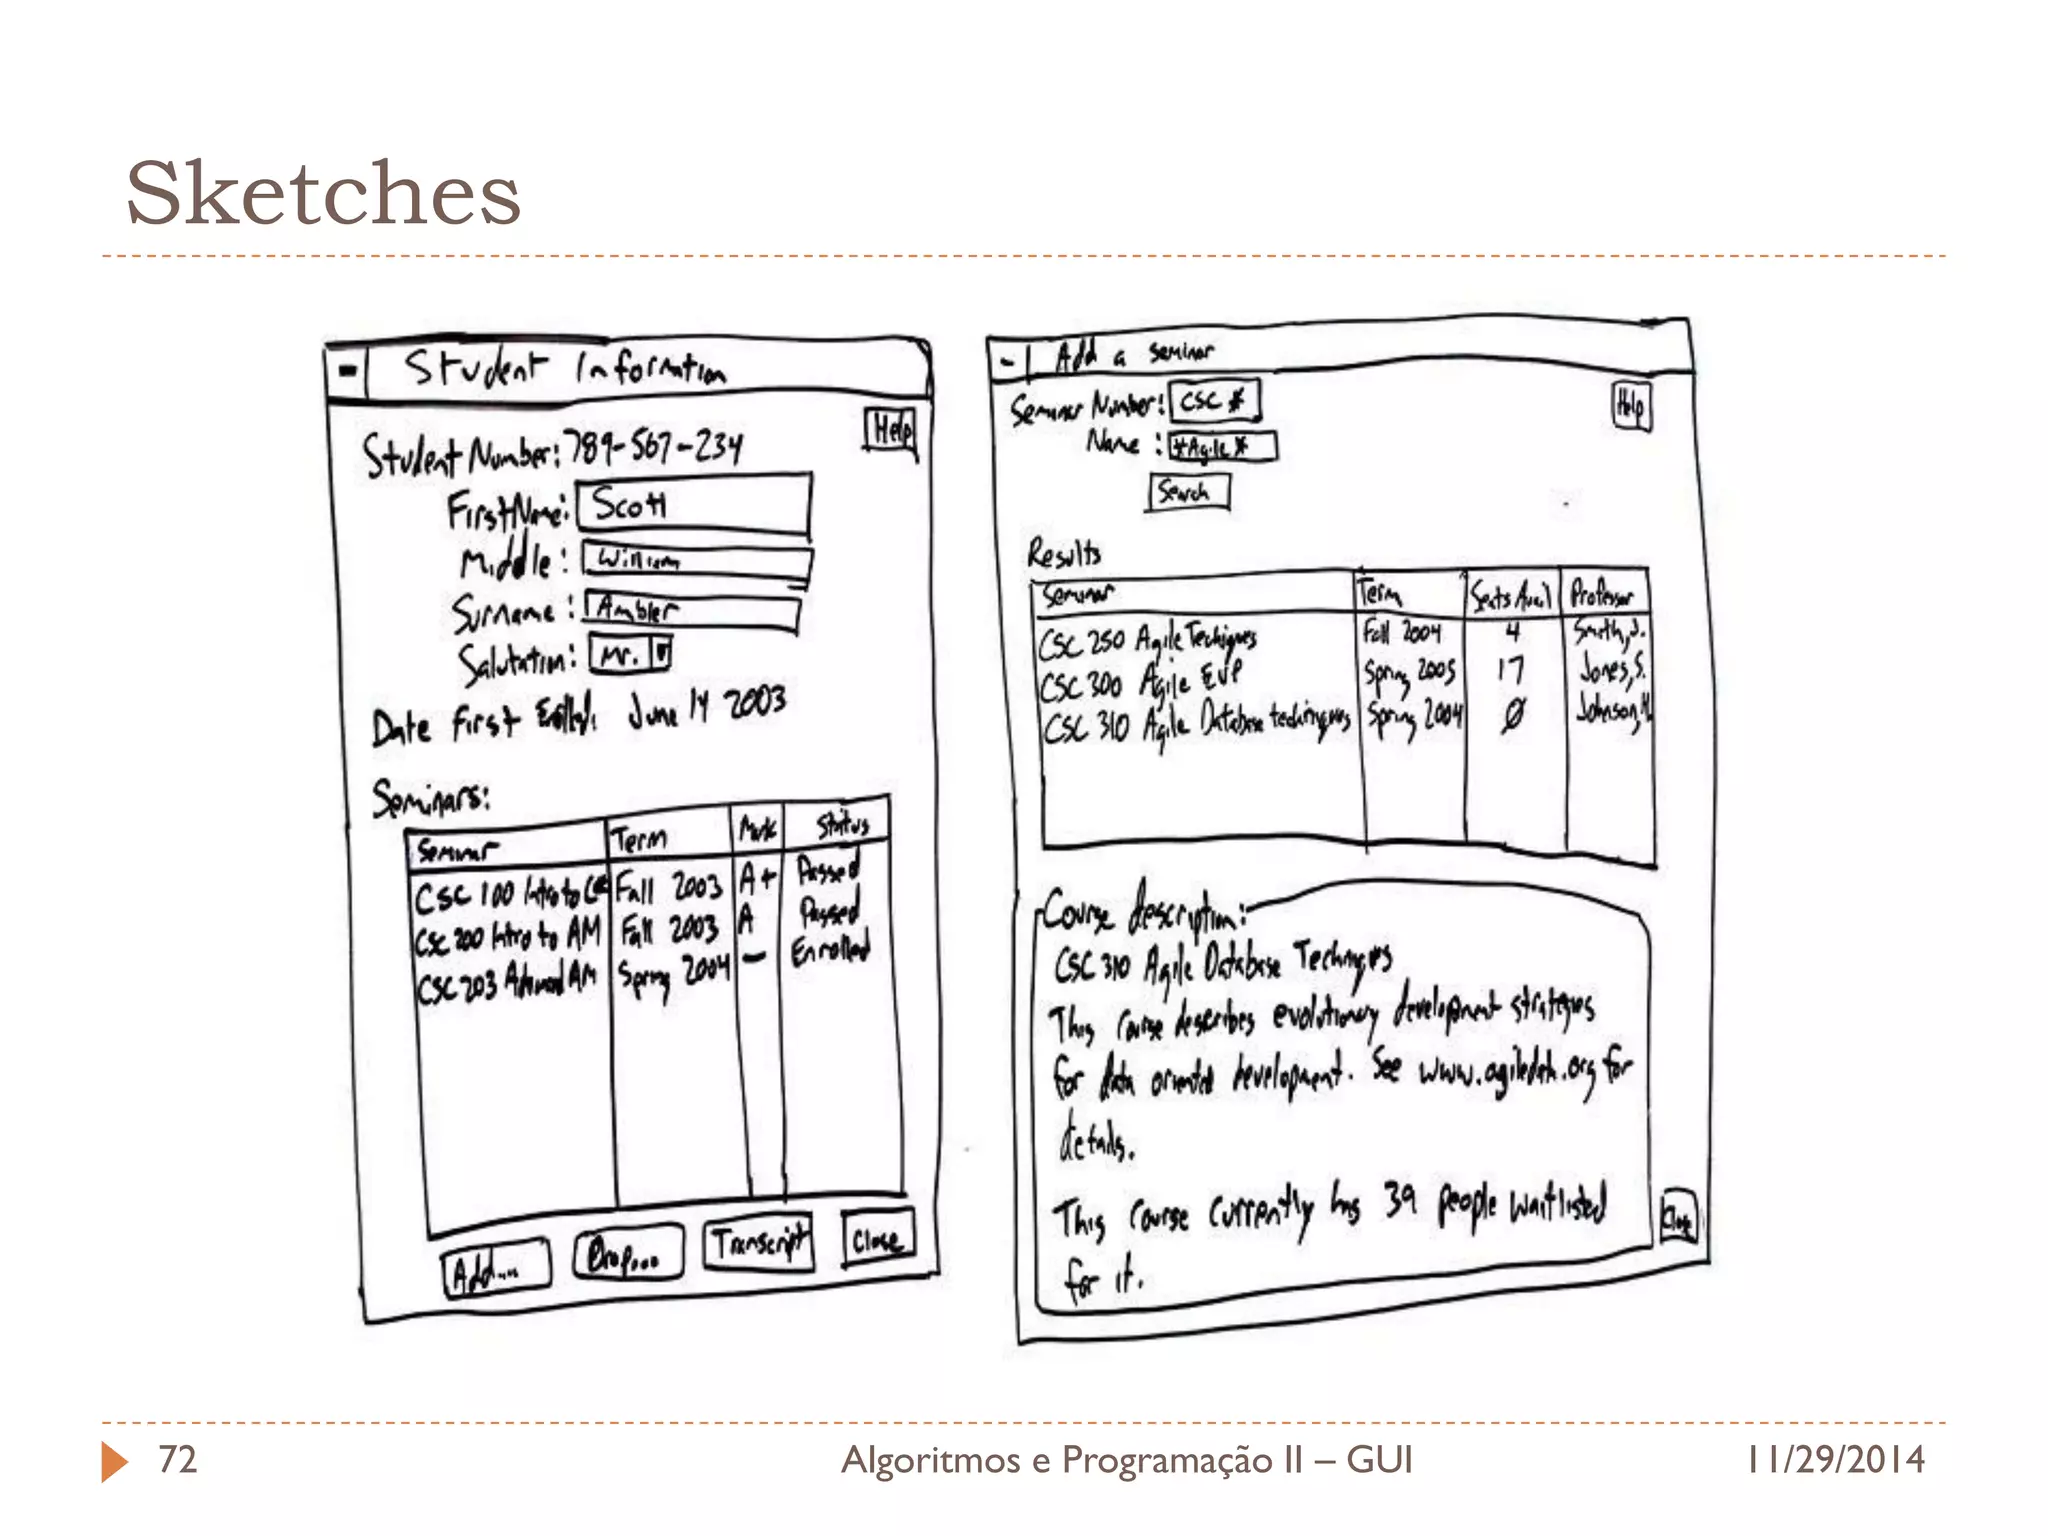 Sketches
- Student Information
Help
Student Number: 789-567-234
First Name: Scott
Middle: William
Surname: Ambler
Salutation: Mr.
Date First Enrolled: June 14 2003
Seminars:
Seminar Term Mark Status
CSC 100 Intro to Fall 2003 A+ Passed
CSC 200 Intro to AM Fall 2003 A Passed
CSC 203 Advanced AM Spring 2004 - Enrolled
Add... Drop... Transcript Close
- Add a seminar
Seminar Number: CSC * Help
Name: *Agile*
Search
Results
Seminar Term Seats Avail Professor
CSC 250 Agile Techniques Fall 2004 4 Smith, J.
CSC 300 Agile Spring 2005 17 Jones, S.
CSC 310 Agile Database techniques Spring 2004 0 Johnson, M.
Course description:
CSC 310 Agile Database Techniques
This course describes evolutionary development strategies
for data oriented development. See www.agiledata.org for
details.
This course currently has 39 people waitlisted
for it.
Close
72 Algoritmos e Programação II – GUI 11/29/2014